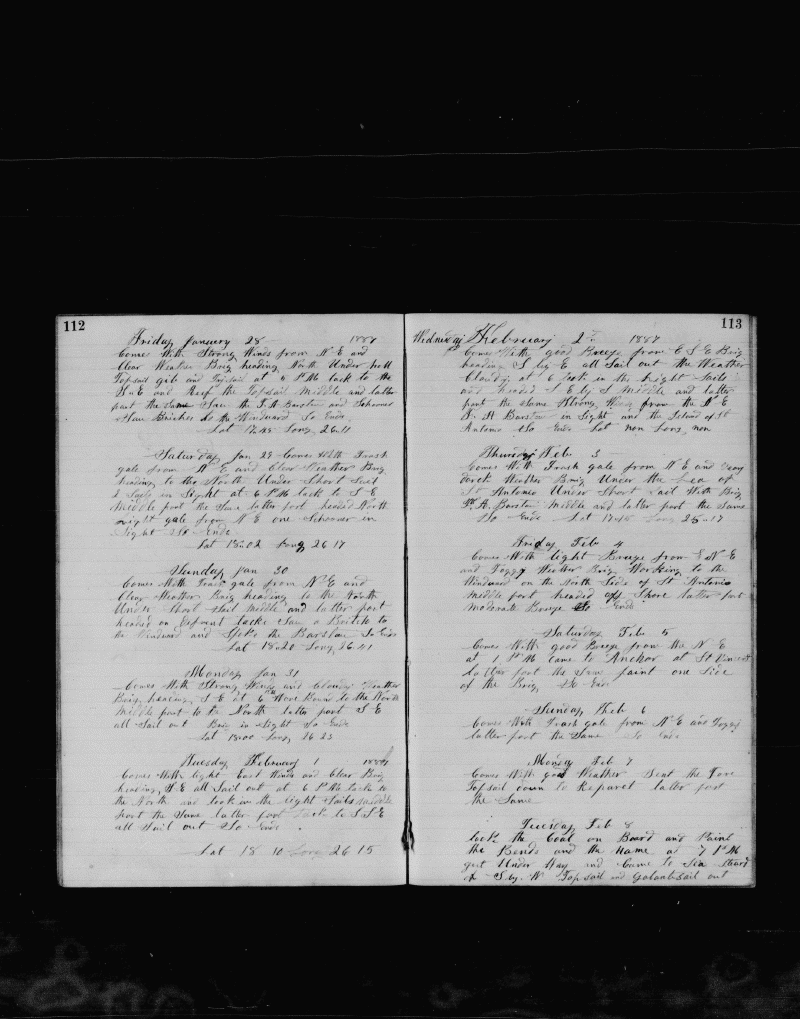 112
Friday January 28 1887
Comes With Strong Winds from N E and
Clear Weather Brig heading North Under
Topsail gib and Trysail at 6 P M tack to the
and Keep the Topsail Middle and latter
part the same Saw the F. A Barstow and Schooner
to the Windward So Ends
Lat 17.45 Long 26.11
Saturday Jan 29 Comes With Frash
gale from N E and Clear Weather Brig
heading to the North Under Short Sail
2 Sails in Sight at 6 P M tack to S E
Middle part the Same latter part headed North
gale from N E one Schooner in
Sight So Ends
Lat 18.02 Long 26 17
Sunday Jan 30
Comes With Frash gale from N E and
Clear Weather Brig heading to the North
Under Short Sail Middle and latter part
headed on Different tacks Saw a British to
the Windward and Spoke the Barstow So Ends
Lat 18.20 Long 26.41
Monday Jan 31
Comes With Strong Winds and Cloudy Weather
Brig heading S E at 6 P M Wore Round to the North
Middle part to the North latter part S E
all Sail out Brig in Sight So Ends
Lat 18.00 Long 26 23
Tuesday February 1 1887
Comes With light East Winds and Clear Brig
heading S E all Sail out at 6 P M tack to
the North and took in the light Sails Middle
part the Same latter part tack to S S E
all Sail out So Ends
Lat 18 10 Long 26 15
113
Wednesday February 2 1887
Comes With good Breeze from E S E Brig
heading S by E all Sail out the Weather
Cloudy at 6 took in the light Sails
and headed S E by S Middle and latter
part the same Strong Winds from the N E
F. A Barstow in Sight and the Island of St
Antonio So Ends Lat non Long non
Thursday Feb 3
Comes With Frash gale from N E and very
darck Weather Brig Under the Lea of
St Antonio Under Short Sail With Brig
F. A. Barstow Middle and latter part the Same
So Ends Lat 17.15 Long 25.17
Friday Feb 4
Comes With light Breeze from N E
and Foggy Weather Brig Working to the
Windward on the North Side of St Antonio
Middle part headed off Shore latter part
moderate Breeze So Ends
Saturday Feb 5
Comes With good Breeze from the N E
at 1 P M Came to Anchor at St Vincent
latter part the Same paint one Side
of the Brig So Ends
Sunday Feb 6
Comes With Frash gale from N E and Foggy
latter part the Same So Ends
Monday Feb 7
Comes With good Weather Sent the Fore
Topsail down to Reparet latter part
the Same
Tuesday Feb 8
took the Coal on Board and Paint
the Bends and the Name at 7 P M
got Under Way and Came to Sea Stard
S by W Topsail and Galantsail out